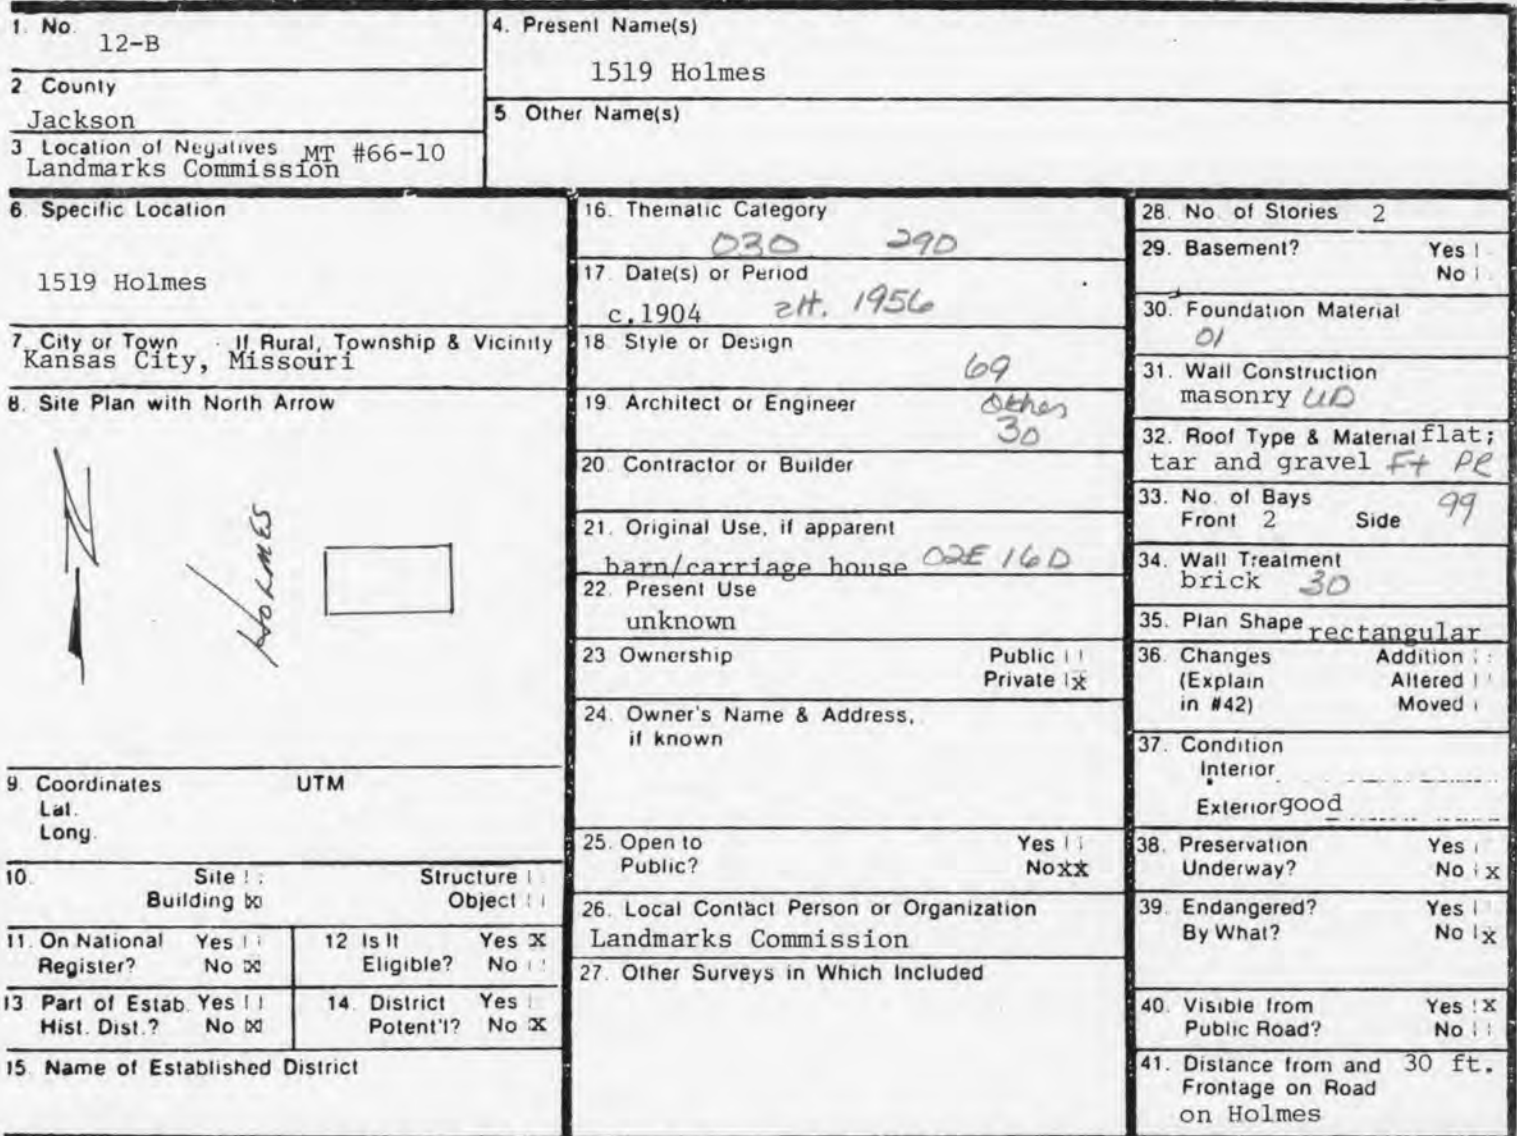 1. No.
12-B
2 County
Jackson
3 Location of Negatives MT #66-10
Landmarks Commission
4. Present Name(s)
1519 Holmes
5 Other Name(s)
6. Specific Location
1519 Holmes
7 City or Town If Rural, Township & Vicinity
Kansas City, Missouri
8. Site Plan with North Arrow
HOLMES
9. Coordinates UTM
Lat.
Long.
10. Site Structure
Building X Object
11. On National Yes
Register? No X
12 Is It Yes X
Eligible? No
13 Part of Estab. Yes
Hist. Dist.? No X
14. District Yes
Potent'l? No X
15. Name of Established District
16. Thematic Category
030 290
17. Date(s) or Period
c.1904 1956
18. Style or Design
69
19. Architect or Engineer Other
30
20. Contractor or Builder
21. Original Use, if apparent
barn/carriage house 02E 16D
22. Present Use
unknown
23 Ownership Public
Private X
24. Owner's Name & Address,
if known
25. Open to Yes
Public? No XX
26. Local Contact Person or Organization
Landmarks Commission
27. Other Surveys in Which Included
28. No. of Stories 2
29. Basement? Yes
No
30. Foundation Material
01
31. Wall Construction
masonry UD
32. Roof Type & Material flat;
tar and gravel Ft PR
33. No. of Bays 99
Front 2 Side
34. Wall Treatment
brick 30
35. Plan Shape rectangular
36. Changes Addition
(Explain Altered
in #42) Moved
37. Condition
Interior
Exterior good
38. Preservation Yes
Underway? No X
39. Endangered? Yes
By What? No X
40. Visible from Yes X
Public Road? No
41. Distance from and 30 ft.
Frontage on Road
on Holmes